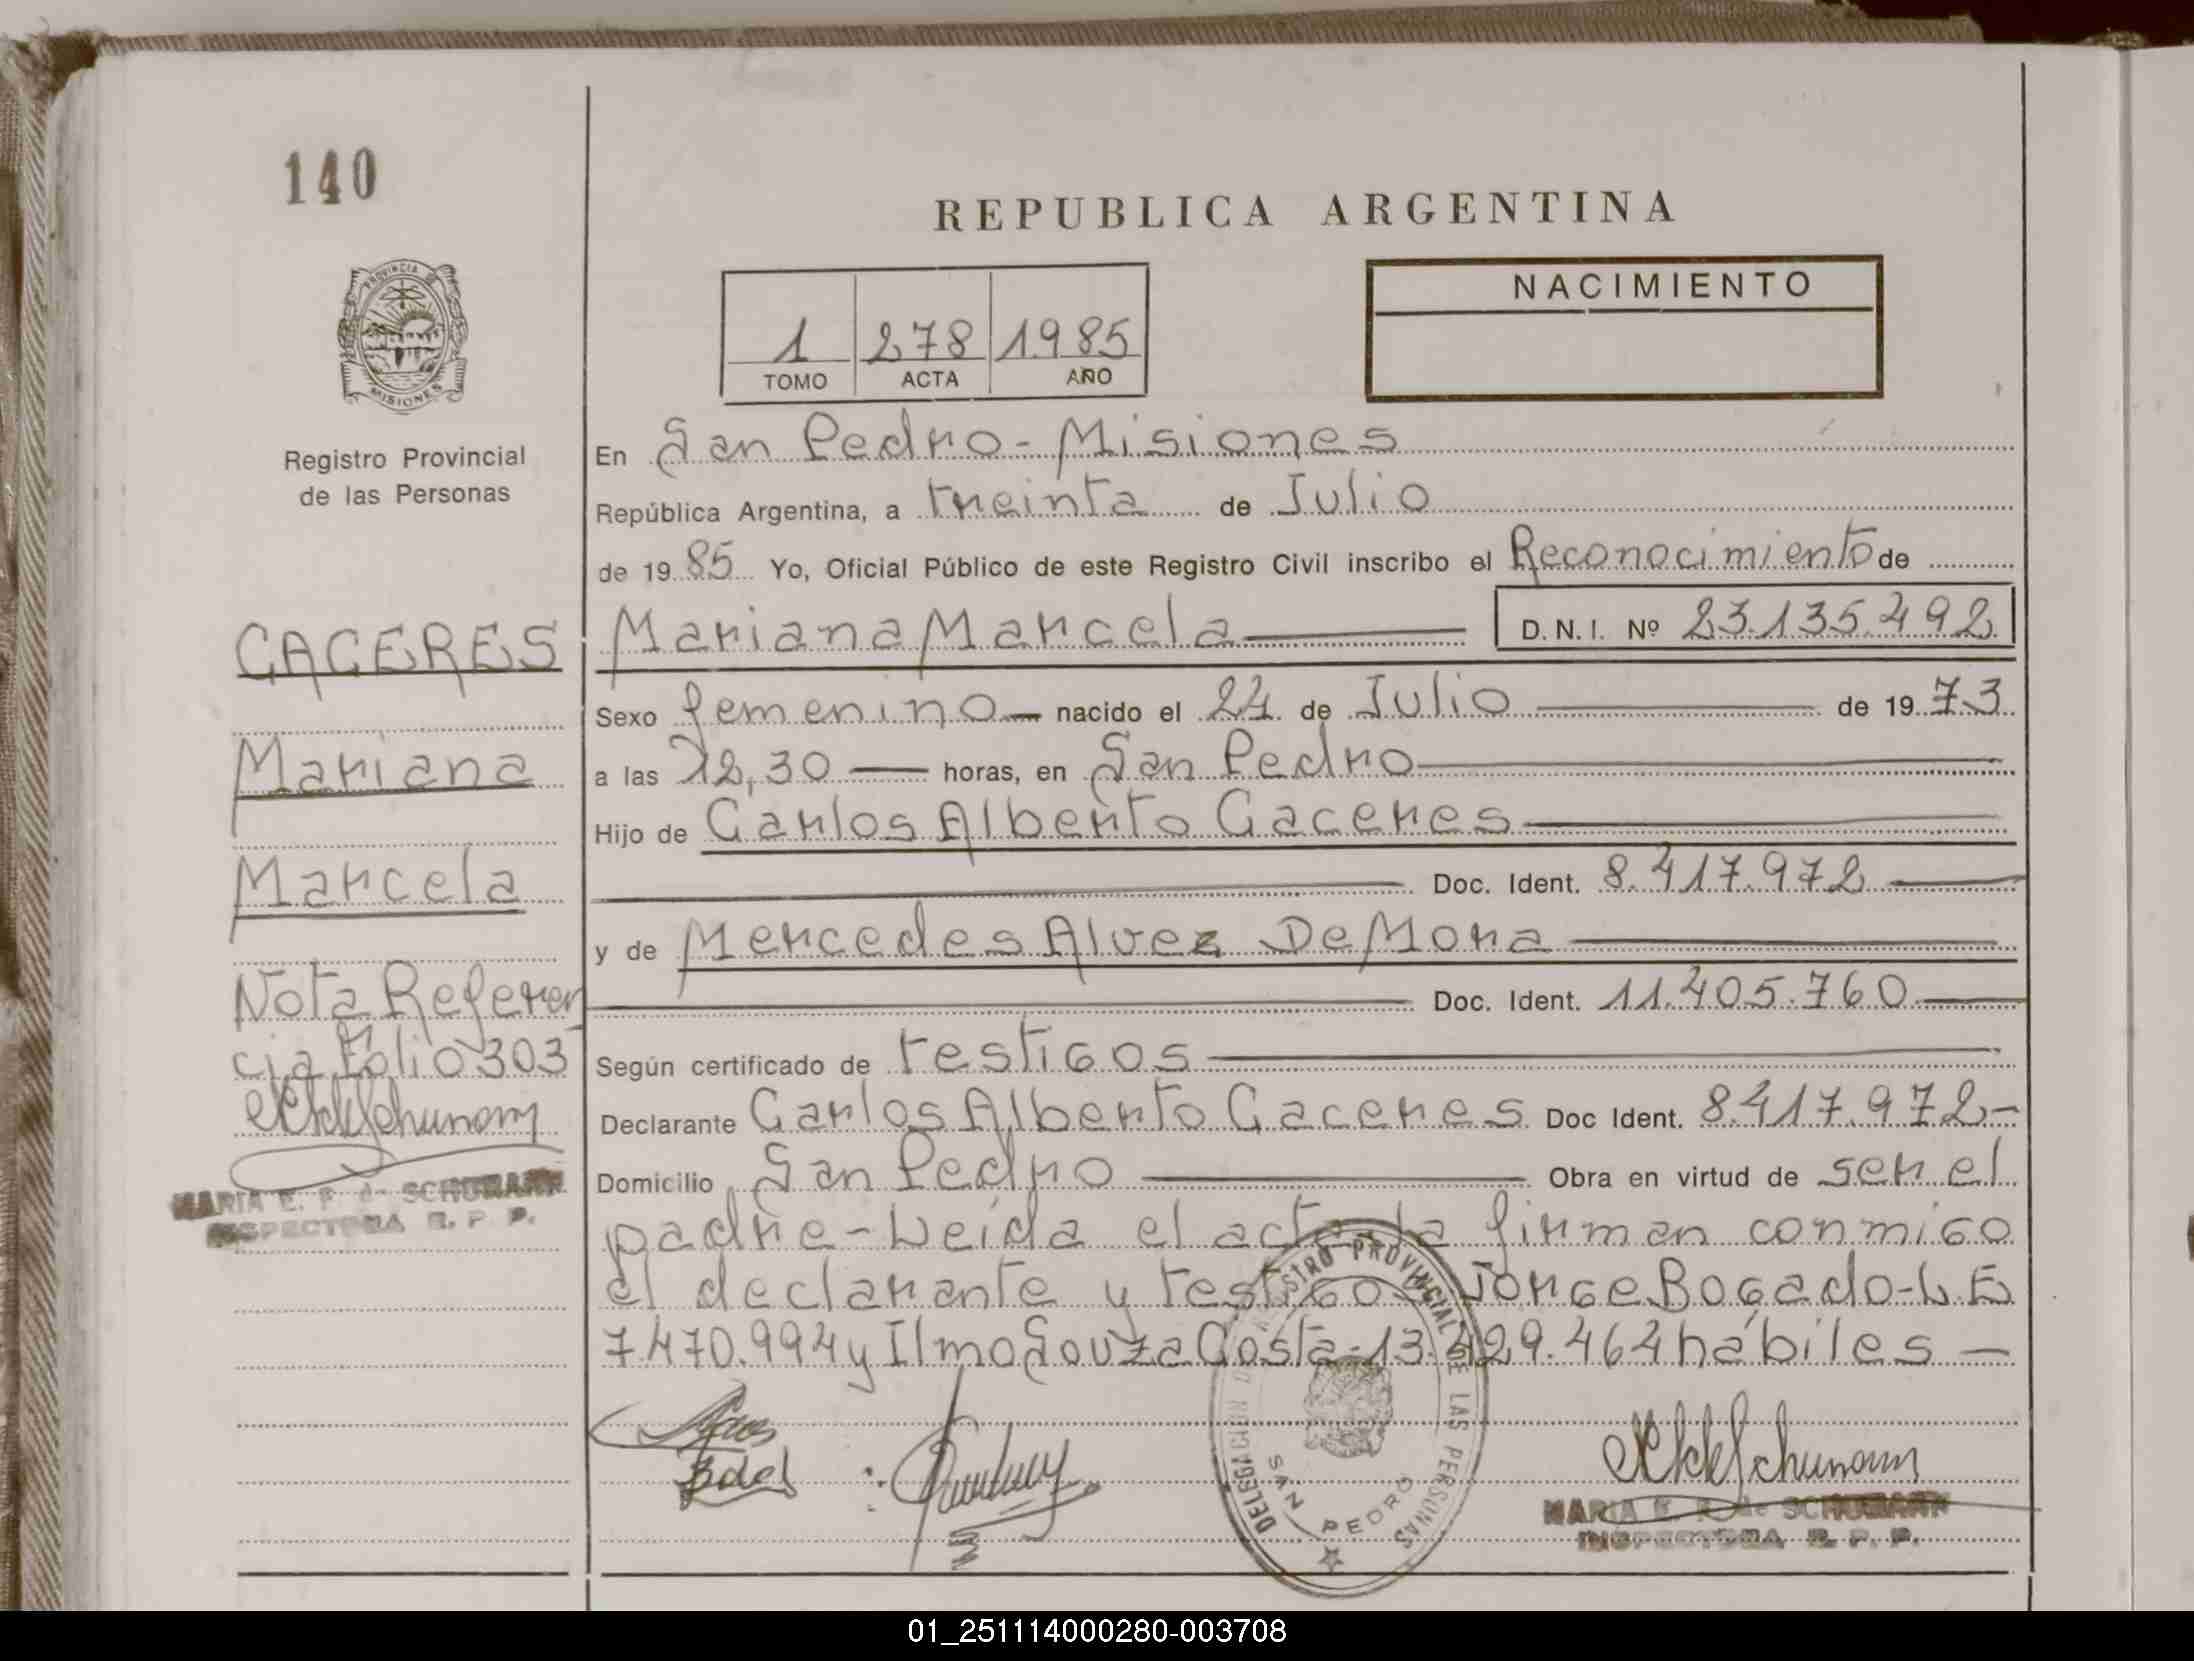 140
REPUBLICA ARGENTINA
NACIMIENTO
1 278 1985
TOMO ACTA AÑO
PROVINCIA DE
MISIONES
Registro Provincial
de las Personas
En San Pedro - Misiones
República Argentina, a treinta de Julio
de 19 85 Yo, Oficial Público de este Registro Civil inscribo el Reconocimiento de
CACERES
Mariana Marcela D.N.I. Nº 23.135.492
Sexo femenino nacido el 24 de Julio de 19 73
Mariana
a las 12,30 horas, en San Pedro
Hijo de Carlos Alberto Caceres
Marcela
Doc. Ident. 8.417.972
y de Mercedes Alvez De Mora
Nota Referen
Doc. Ident. 11.405.760
cia Folio 303
Según certificado de testigos
Declarante Carlos Alberto Caceres Doc Ident. 8.417.972-
Domicilio San Pedro Obra en virtud de ser el
MARIA E. P. de SCHUMANN
INSPECTORA R. P. P.
padre - Leída el acta la firman conmigo
el declarante y testigos Jorge Bogado - L E
7.470.994 y Ilmo Souza Costa - 13.429.464 hábiles —
DELEGACION DEL REGISTRO PROVINCIAL DE LAS PERSONAS
SAN PEDRO
MARIA E. P. de SCHUMANN
INSPECTORA R. P. P.
01_251114000280-003708